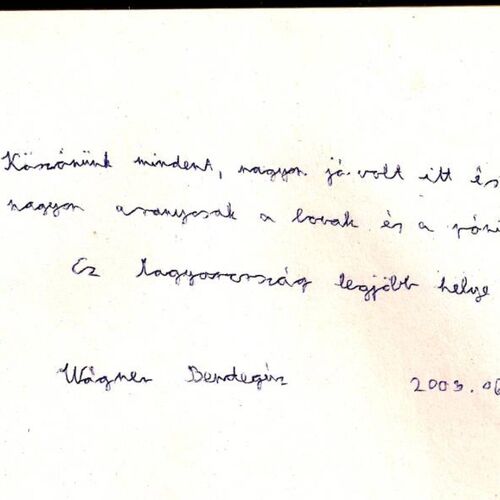 Köszönünk mindent, nagyon jó volt itt és
nagyon aranyosak a lovak és a póni
Ez Magyarország legjobb helye
Wágner Bendegúz 2003.06